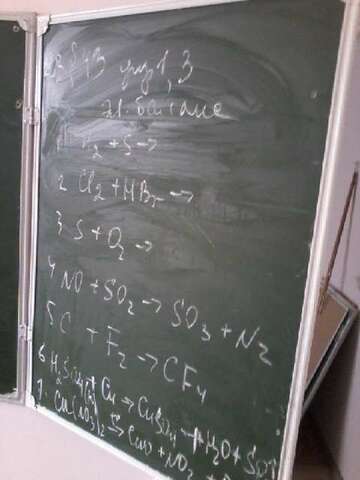 упр 1, 3
эл. баланс
2 Cl₂ + HBr →
3 S + O₂ →
4 NO + SO₂ → SO₃ + N₂
5 C + F₂ → CF₄
6 H₂SO₄ + Cu → CuSO₄ + H₂O + SO
7. Cu(NO₃)₂ → CuO + NO₂ +